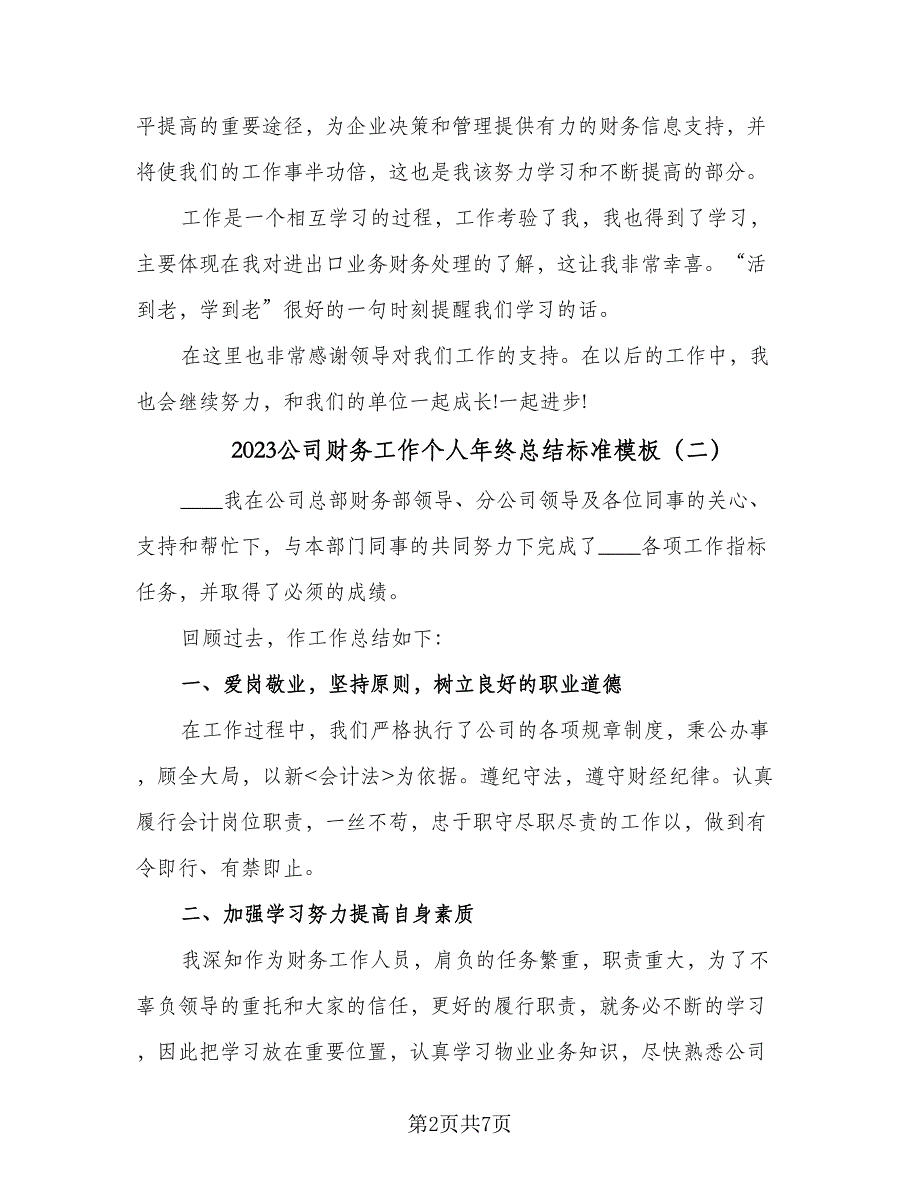 平提高的重要途径，为企业决策和管理提供有力的财务信息支持，并
将使我们的工作事半功倍，这也是我该努力学习和不断提高的部分。
工作是一个相互学习的过程，工作考验了我，我也得到了学习，
主要体现在我对进出口业务财务处理的了解，这让我非常幸喜。“活
到老，学到老”很好的一句时刻提醒我们学习的话。
在这里也非常感谢领导对我们工作的支持。在以后的工作中，我
也会继续努力，和我们的单位一起成长!一起进步!
2023公司财务工作个人年终总结标准模板（二）
____我在公司总部财务部领导、分公司领导及各位同事的关心、
支持和帮忙下，与本部门同事的共同努力下完成了____各项工作指标
任务，并取得了必须的成绩。
回顾过去，作工作总结如下：
一、爱岗敬业，坚持原则，树立良好的职业道德
在工作过程中，我们严格执行了公司的各项规章制度，秉公办事
，顾全大局，以新<会计法>为依据。遵纪守法，遵守财经纪律。认真
履行会计岗位职责，一丝不苟，忠于职守尽职尽责的工作以，做到有
令即行、有禁即止。
二、加强学习努力提高自身素质
我深知作为财务工作人员，肩负的任务繁重，职责重大，为了不
辜负领导的重托和大家的信任，更好的履行职责，就务必不断的学习
，因此把学习放在重要位置，认真学习物业业务知识，尽快熟悉公司
第2页共7页